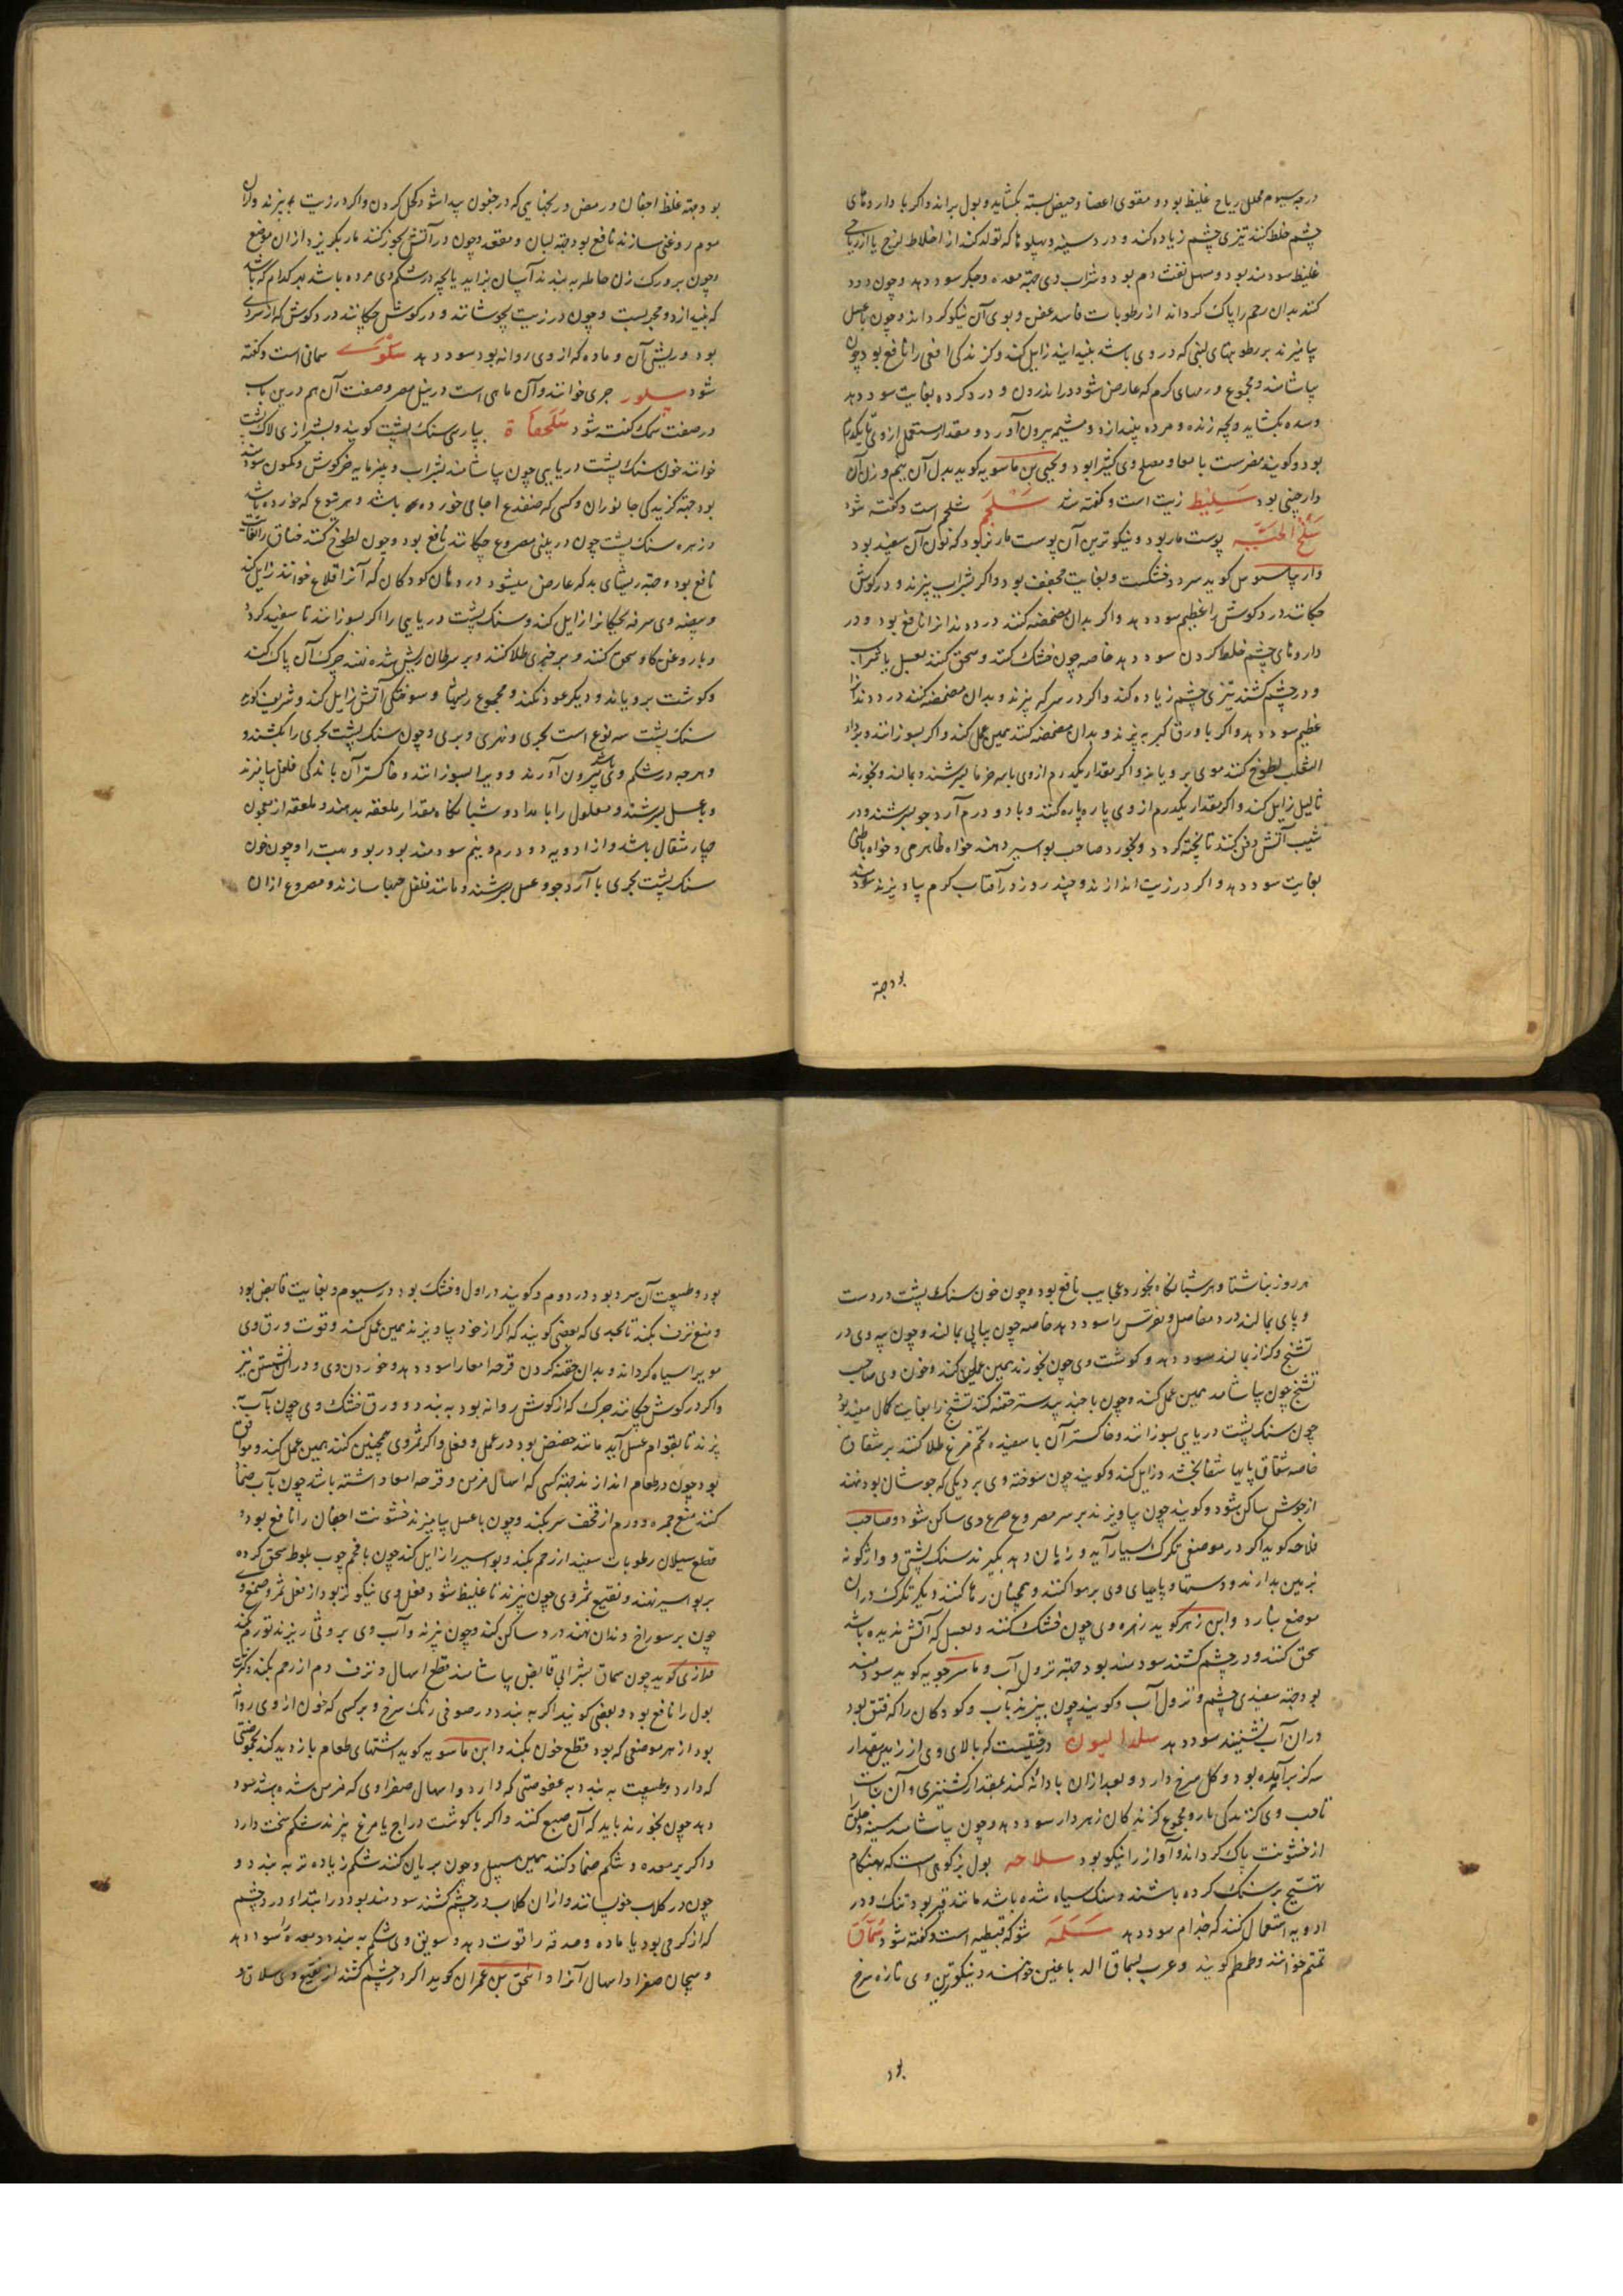 درجه سیوم محلل ریاح غلیظ بود و مقوی اعضا و حیض بسته بکشاید و بول براند و اکر با داروهای
چشم خلط کنند تیزی چشم زیاده کند و درد سینه و پهلو ها که تولد کند از اخلاط لزج یا از ریاحی
غلیظ سودمند بود و مسهل نفث دم بود و شراب وی جهة معده و جکر سود دهد و چون دود
کنند بدان رحم را پاک کرداند از رطوبات فاسد عفن و بوی آن نیکو کرداند و چون با عسل
بیامیزند بر رطوبتهای لبنی که در وی باشد بنیدایند زایل کند و کزندکی افعی را نافع بود چون
بیاشامند و مجموع ورمهای کرم که عارض شود در اندرون و درد کرده بغایت سود دهد
وسده بکشاید و بچه زنده و مرده بیندازد و مشیمه بیرون آورد و مقدار مستعمل از وی تا یکدرم
بود و کویند مضرست بامعا و مصلح وی کثیرا بود و یحیی بن ماسویه کوید بدل آن نیم وزن آن
دارچینی بود سَلِیْط زیت است و کفته شد سَلْجَم شلجم است و کفته شود
سَلْخُ الحَیَّة پوست مار بود و نیکوترین آن پوست مار نر بود که لون آن سفید بود
کوید سرد و خشکست و بغایت مجفف بود و اکر بشراب بپزند و در کوش
جکانند درد کوش را عظیم سود دهد و اکر بدان مضمضه کنند درد دندانرا نافع بود و در
داروهای چشم خلط کردن سود دهد خاصه چون خشک کنند و سحق کنند بعسل یا شراب
و در چشم کشند تیزی چشم زیاده کند و اکر در سرکه پزند و بدان مضمضه کنند درد دندانرا
عظیم سود دهد و اکر با ورق کبر بپزند و بدان مضمضه کنند همین عمل کند و اکر بسوزانند و بر داء
الثعلب لطوخ کنند موی برویاند و اکر مقدار یکدرم از وی با سه خرما بسرشند و بمالند و بخورند
ثالیل زایل کند و اکر مقدار یکدرم از وی پاره پاره کنند و با دو درم آرد جو بسرشند و در
شیب آتش دفن کنند تا پخته کردد و بخورد صاحب بواسیر دهند خواه ظاهری و خواه باطنی
بغایت سود دهد و اکر در زیت اندازند و چند روز در آفتاب کرم بیاویزند سودمند
بود جهة
بود جهة غلظ اجفان و رمص و ریحهایی که در جفون پیدا شود کحل کردن و اکر در زیت بپزند و از آن
موم روغنی سازند نافع بود جهة لبان و مقعد و چون در آتش بخور کنند مار بکریزد از ان موضع
و چون بر ورک زن حامله بندند آسان بزاید یا بچه در شکم وی مرده باشد هر کدام که باشد
که بیندازد و مجربست و چون در زیت بجوشانند و در کوش چکانند درد کوش که از سردی
بود و ریش آن و ماده که از وی روانه بود سود دهد سَلْوَے سمانی است و کفته
شود سلور جری خوانند و آن ماهی است در نیل مصر و صفت آن هم درین باب
در صفت سمک کفته شود سُلَحفاة بپارسی سنک پشت کویند و بشیرازی لاک پشت
خوانند خون سنک پشت دریایی چون بیاشامند بشراب و پنیر مایه خرکوش و کمون سودمند
بود جهة کزیدکی جانوران و کسی که ضفدع اجامی خورده باشد و هر یتوع که خورده باشد
و زهره سنک پشت چون در بینی مصروع چکانند نافع بود و چون لطوخ کنند خناق را بغایت
نافع بود و جهة ریشهای بد که عارض میشود در دهان کودکان که آنرا قلاع خوانند زایل کند
و بیضه وی سرفه بچکانرا زایل کند و سنک پشت دریایی را اکر بسوزانند تا سفید کردد
و با روغن کاو سحق کنند و بر خنزیری طلا کنند و بر سرطان ریش شده نهند چرک آن پاک کند
و کوشت برویاند و دیکر عود نکند و مجموع ریشها و سوختکی آتش زایل کند و شریف کوید
سنک پشت سه نوع است بحری و نهری و بری و چون سنک پشت بحری را بکشند و
و هر چه در شکم وی باشد بیرون آورند و ویرا بسوزانند و خاکستر آن با اندکی فلفل بیامیزند
و بعسل بسرشند و مسلول را بامداد و شبانکاه مقدار ملعقه بدهند و ملعقه از معجون
چهار مثقال باشد و از ادویه دو درم و نیم سودمند بود ربو و بهت را و چون خون
سنک پشت بحری با آرد جو و عسل بسرشند و مانند فلفل حبها سازند و مصروع از ان
هر روز بناشتا و هر شبانکاه بخورد عجایب نافع بود و چون خون سنک پشت در دست
و پای بمالند درد مفاصل و نقرس را سود دهد خاصه چون پیاپی بمالند و چون پیه وی در
تشنج و کزاز بمالند سود دهد و کوشت وی چون بخورند همین عمل کند و خون وی صاحب
تشنج چون بیاشامد همین عمل کند و چون با جند بیدستر حقنه کنند تشنج را بغایت کمال مفید بود
چون سنک پشت دریایی بسوزانند و خاکستر آن با سفیده تخم مرغ طلا کنند بر شقاق
خاصه شقاق پایها شفا بخشد و زایل کند و کویند چون سوخته وی بر دیکی که جوشان بود نهند
از جوش ساکن شود و کویند چون بیاویزند بر سر مصروع صرع وی ساکن شود و صاحب
فلاحه کوید اکر در موضعی تکرک بسیار آید و زیان دهد بکیرند سنک پشتی و واژکونه
بزمین بدارند و دستها و پایهای وی بر هوا کنند و همچنان رها کنند دیکر تکرک در ان
موضع نبارد و ابن زهر کوید زهره وی چون خشک کنند و بعسل که آتش ندیده باشد
سحق کنند و در چشم کشند سودمند بود جهة نزول آب و ماسرجویه کوید سودمند
بود جهة سفیدی چشم و نزول آب و کویند چون بپزند بآب و کودکان را که فتق بود
در ان آب نشینند سود دهد سلدالیون درختیست که بالای وی از زمین مقدار
سه کز برآمده بود و کل سرخ دارد و بعد از ان با دانه کند بمقدار کشنیزی و آن نبات
وی کزندکی مار و مجموع کزندکان زهردار سود دهد و چون بیاشامند سینه و حلق
از خشونت پاک کرداند و آواز را نیکو بود سلاحه بول بز کوهی است که بهنکام
تهییج بر سنک کرده باشند و سنک سیاه شده باشد مانند قیر بود تنک و در
ادویه استعمال کنند که جذام سود دهد سَلَمَه شوکه قبطیه است و کفته شود سُماق
تمتم خوانند و طمطم کویند و عرب بسماق الدباغین خوانند و نیکوترین وی تازه سرخ
بود
بود و طبیعت آن سرد بود در دوم و کویند در اول و خشک بود در سیوم و بغایت قابض بود
و منع نزف بکند تا بحدی که بعضی کویند که اکر از خود بیاویزند همین عمل کند و قوت ورق وی
مویرا سیاه کرداند و بدان حقنه کردن قرحه امعا را سود دهد و خوردن وی و در آن نشستن نیز
و اکر در کوش چکانند چرک که از کوش روانه بود ببندد و ورق خشک وی چون بآب
پزند تا بقوام عسل آید مانند حضض بود در عمل و فعل و اکر ثمر وی همچنین کنند همین عمل کند و موافق
بود چون در طعام اندازند جهة کسی که اسهال مزمن و قرحه امعا داشته باشد چون بآب ضماد
کنند منع جمره و ورم از قحف سر بکند و چون با عسل بیامیزند خشونت اجفان را نافع بود و
قطع سیلان رطوبات سفید از رحم بکند و بواسیر را زایل کند چون با فحم چوب بلوط سحق کرده
بر بواسیر نهند و نقیع ثمر وی چون بپزند تا غلیظ شود فعل وی نیکوتر بود از فعل ثمر و صمغ وی
چون بر سوراخ دندان نهند درد ساکن کند و چون بپزند و آب وی بر وثی ریزند تورم نکند
و رازی کوید چون سماق بشرابی قابض بیاشامند قطع اسهال و نزف دم از رحم بکند و کثرت
بول را نافع بود و بعضی کویند اکر ببندند در صوفی رنک سرخ و بر کسی که خون از وی روانه
بود از هر موضعی که بود قطع خون بکند و ابن ماسویه کوید اشتهای طعام بازدید کند بحموضتی
که دارد و طبیعت ببندد بعفوصتی که دارد و اسهال صفراوی که مزمن شده باشد سود
دهد چون بخورند باید که آن صبغ کنند و اکر با کوشت دراج یا مرغ پزند شکم سخت دارد
و اکر بر معده و شکم ضماد کنند همین سبیل و چون بریان کنند شکم زیاده تر ببندد و
چون در کلاب خیسانند و از ان کلاب در چشم کشند سودمند بود در ابتداء درد چشم
که از کرمی بود با ماده و حدقه را قوت دهد و سویق وی شکم ببندد و معده را سود دهد
و هیجان صفرا و اسهال آنرا و اسحق بن عمران کوید اکر در چشم کشند از نقیع وی سلاق و